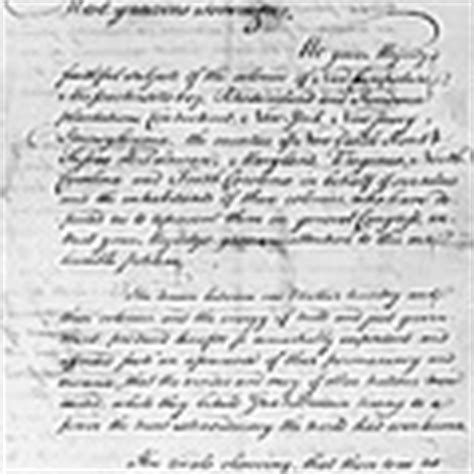 Most gracious Sovereign,
We your Majesty's
faithful subjects of the colonies of New hampshire,
Massachusetts bay, Rhode island and Providence
plantations, Connecticut, New York, New Jersey,
Pennsylvania, the counties of New Castle Kent &
Sussex on Delaware, Maryland, Virginia, North
Carolina and South Carolina in behalf of ourselves
and the inhabitants of these colonies, who have de
puted us to represent them in general Congress, en
treat your Majesty's gracious attention to this our
humble petition.
The union between our Mother country and
these colonies and the energy of mild and just govern
ment produced benefits so remarkably important and
afforded such an assurance of their permanency and
increase, that the wonder and envy of other nations were
excited, while they beheld Great Britain rising to a
power the most extraordinary the world had ever known.
Her rivals observing, that there was no